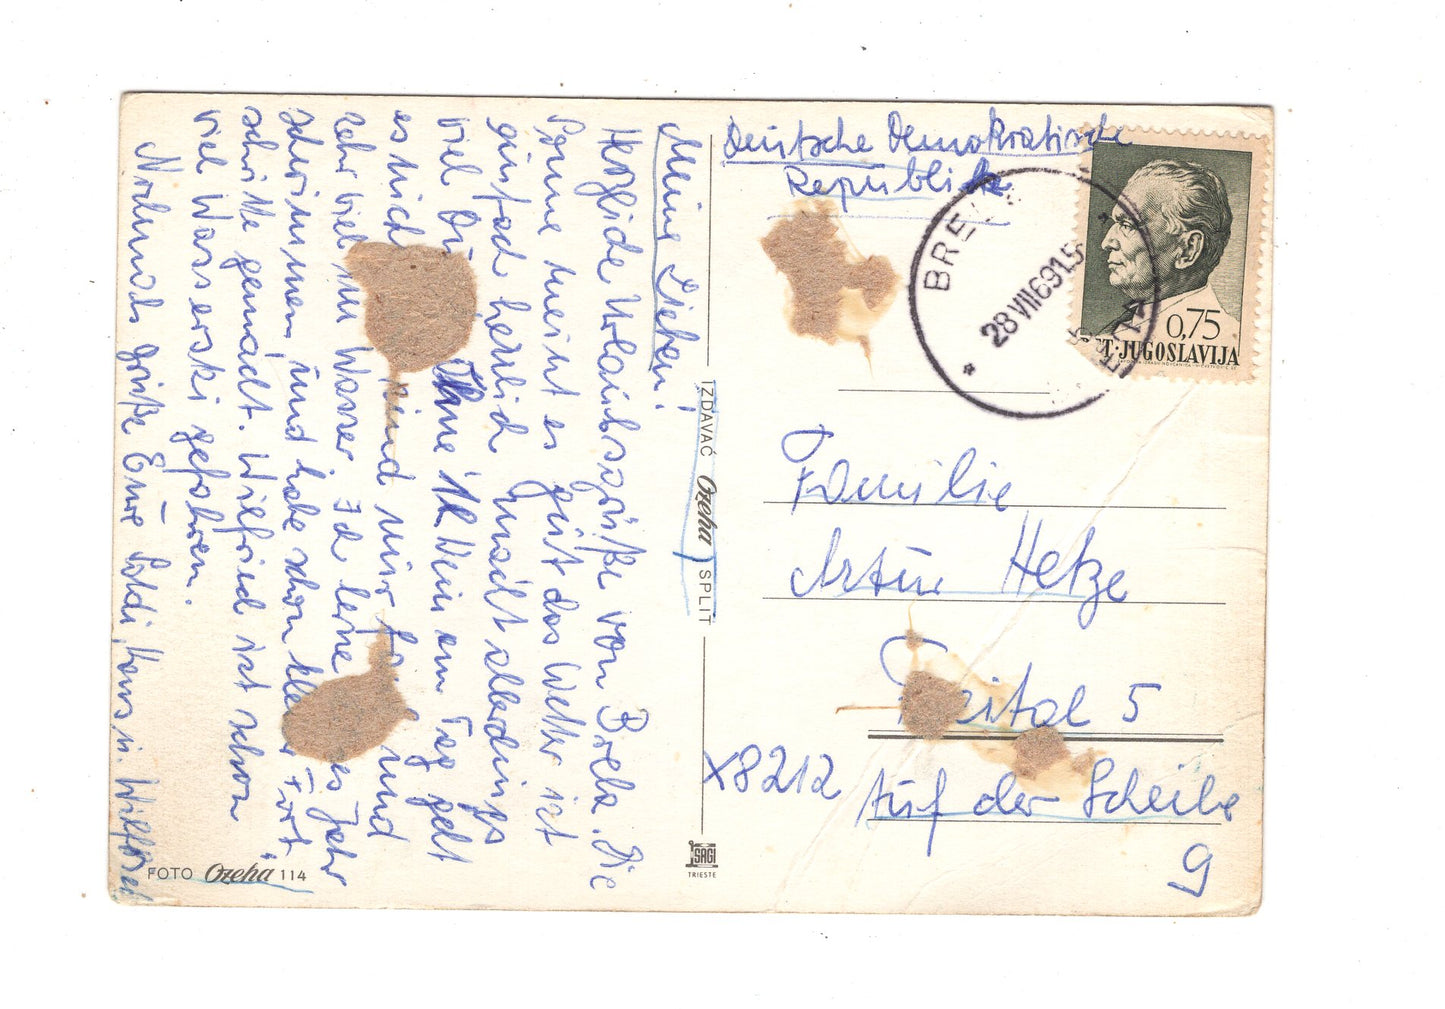 Meine Lieben!
Herzliche Urlaubsgrüße von Brela. Die
Sonne meint es gut das Wetter ist
einfach herrlich macht allerdings
viel Du Ohne Wein am Tag geht
es nich sind wir und
sehr viel im Wasser. Ich lerne Jahr
schwimmen und habe schon Fort
schritte gemacht. Wilfried ist schon
viel Wasserski gefahren.
Nochmals Grüße Eure Loldi, Hans u. Wilfried
FOTO Ozeha 114
IZDAVAČ Ozeha SPLIT
SAGI
TRIESTE
Deutsche Demokratische
Republik
BRE
28 VII 69 15
0,75
JUGOSLAVIJA
Familie
Artur Hetze
Freital 5
X8212
Auf der Scheibe
9